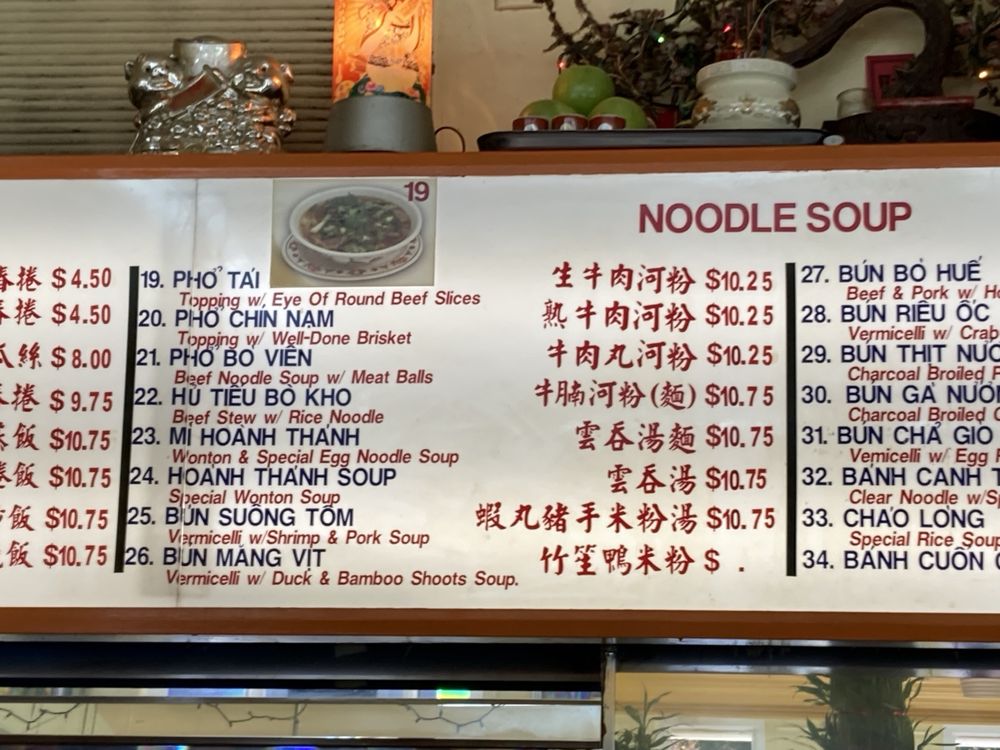 19
NOODLE SOUP
春捲 $4.50
春捲 $4.50
瓜絲 $8.00
春捲 $9.75
飯 $10.75
飯 $10.75
飯 $10.75
飯 $10.75
19. PHỞ TÁI 生牛肉河粉 $10.25
Topping w/ Eye Of Round Beef Slices
20. PHỞ CHÍN NẠM 熟牛肉河粉 $10.25
Topping w/ Well-Done Brisket
21. PHỞ BÒ VIÊN 牛肉丸河粉 $10.25
Beef Noodle Soup w/ Meat Balls
22. HỦ TIẾU BÒ KHO 牛腩河粉(麵) $10.75
Beef Stew w/ Rice Noodle
23. MÌ HOÀNH THÁNH 雲吞湯麵 $10.75
Wonton & Special Egg Noodle Soup
24. HOÀNH THÁNH SOUP 雲吞湯 $10.75
Special Wonton Soup
25. BÚN SUÔNG TÔM 蝦丸豬手米粉湯 $10.75
Vermicelli w/Shrimp & Pork Soup
26. BÚN MĂNG VỊT 竹笙鴨米粉 $ .
Vermicelli w/ Duck & Bamboo Shoots Soup.
27. BÚN BÒ HUẾ
Beef & Pork w/
28. BÚN RIÊU ỐC
Vermicelli w/ Crab
29. BÚN THỊT
Charcoal Broiled
30. BÚN GÀ
Charcoal Broiled
31. BÚN CHẢ GIÒ
Vemicelli w/ Egg
32. BÁNH CANH
Clear Noodle w/
33. CHÁO LÒNG
Special Rice Soup
34. BÁNH CUỐN